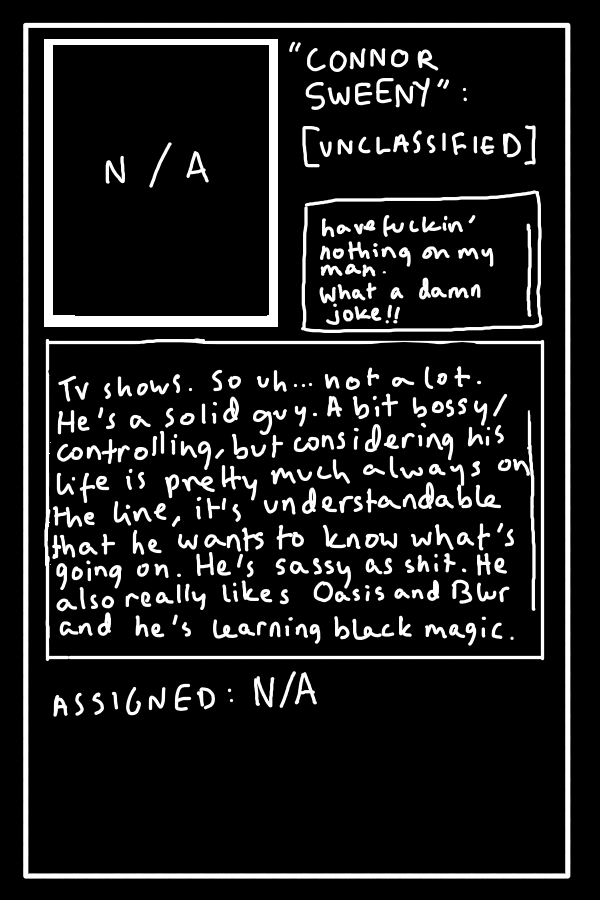 N / A
"CONNOR
SWEENY":
[UNCLASSIFIED]
have fuckin'
nothing on my
man.
what a damn
joke!!
TV shows. So uh... not a lot.
He's a solid guy. A bit bossy/
controlling, but considering his
life is pretty much always on
the line, it's understandable
that he wants to know what's
going on. He's sassy as shit. He
also really likes Oasis and Blur
and he's learning black magic.
ASSIGNED: N/A